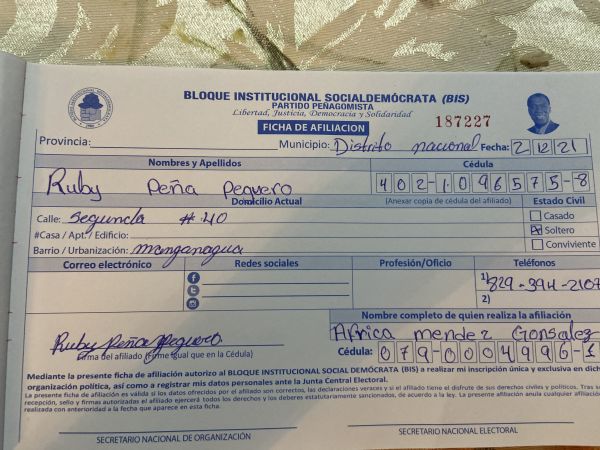 BLOQUE INSTITUCIONAL SOCIALDEMÓCRATA (BIS)
PARTIDO PEÑAGOMISTA
Libertad, Justicia, Democracia y Solidaridad
187227
FICHA DE AFILIACION
Provincia: Municipio: Distrito nacional Fecha: 2 12 21
Nombres y Apellidos Cédula
Ruby Peña Pequero 402-1096575-8
Domicilio Actual (Anexar copia de cédula del afiliado) Estado Civil
Calle: Segunda # 40 Casado
#Casa / Apt. / Edificio: Soltero
Barrio / Urbanización: manganagua Conviviente
Correo electrónico Redes sociales Profesión/Oficio Teléfonos
1) 829-394-2107
2)
Nombre completo de quien realiza la afiliación
Africa mendez Gonsalez
Ruby Peña Pequero
Firma del afiliado (Firme igual que en la Cédula) Cédula: 079-0004996-1
Mediante la presente ficha de afiliación autorizo al BLOQUE INSTITUCIONAL SOCIAL DEMÓCRATA (BIS) a realizar mi inscripción única y exclusiva en dich
organización política, así como a registrar mis datos personales ante la Junta Central Electoral.
La presente ficha de afiliación es válida si los datos ofrecidos por el afiliado son correctos, las declaraciones veraces y si el afiliado tiene el disfrute de sus derechos civiles y políticos. Tras s
recepción, sello y firmas autorizadas el afiliado ejercerá todos los derechos y los deberes estatutariamente sancionados, de acuerdo a la ley. La presente afiliación anula cualquier afiliació
realizada con anterioridad a la fecha que aparece en esta ficha.
SECRETARIO NACIONAL DE ORGANIZACIÓN SECRETARIO NACIONAL ELECTORAL